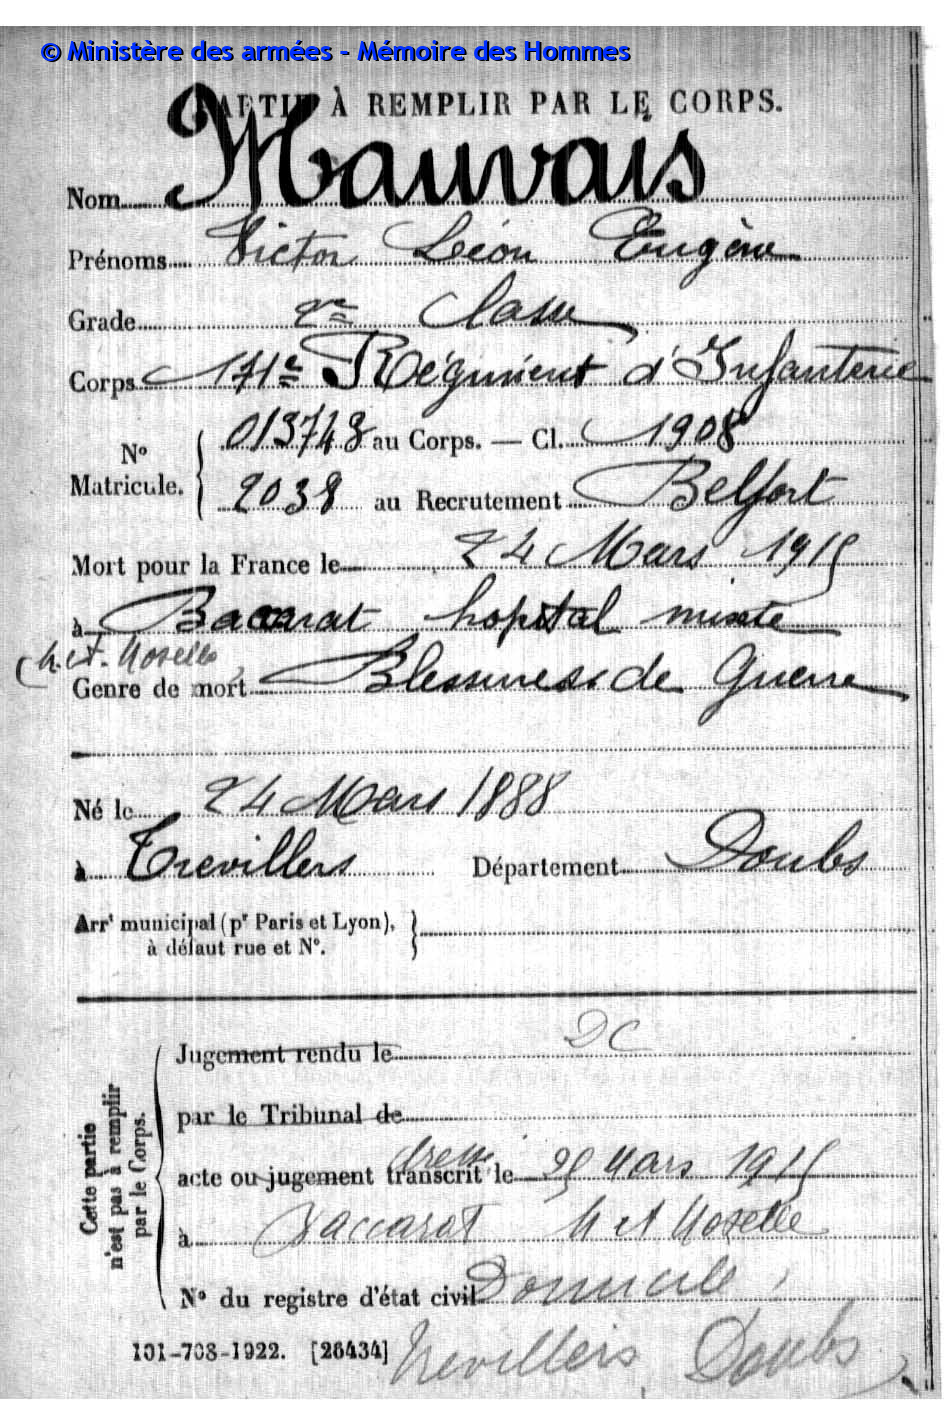 © Ministère des armées - Mémoire des Hommes
PARTIE À REMPLIR PAR LE CORPS.
Nom Mauvais
Prénoms Victor Léon Eugène
Grade 2e Classe
Corps 171e Régiment d'Infanterie
No Matricule. { 013748 au Corps. — Cl. 1908
2038 au Recrutement Belfort
Mort pour la France le 24 Mars 1915
à Baccarat hopital mixte
(M. et. Moselle)
Genre de mort Blessures de Guerre
Né le 24 Mars 1888
à Trevillers Département Doubs
Arrt municipal (pr Paris et Lyon), à défaut rue et No. }
Cette partie n'est pas à remplir par le Corps.
Jugement rendu le DC
par le Tribunal de
dressé
acte ou jugement transcrit le 25 Mars 1915
à Baccarat M et Moselle
No du registre d'état civil Domicile
101-708-1922. [26434] Trevillers Doubs